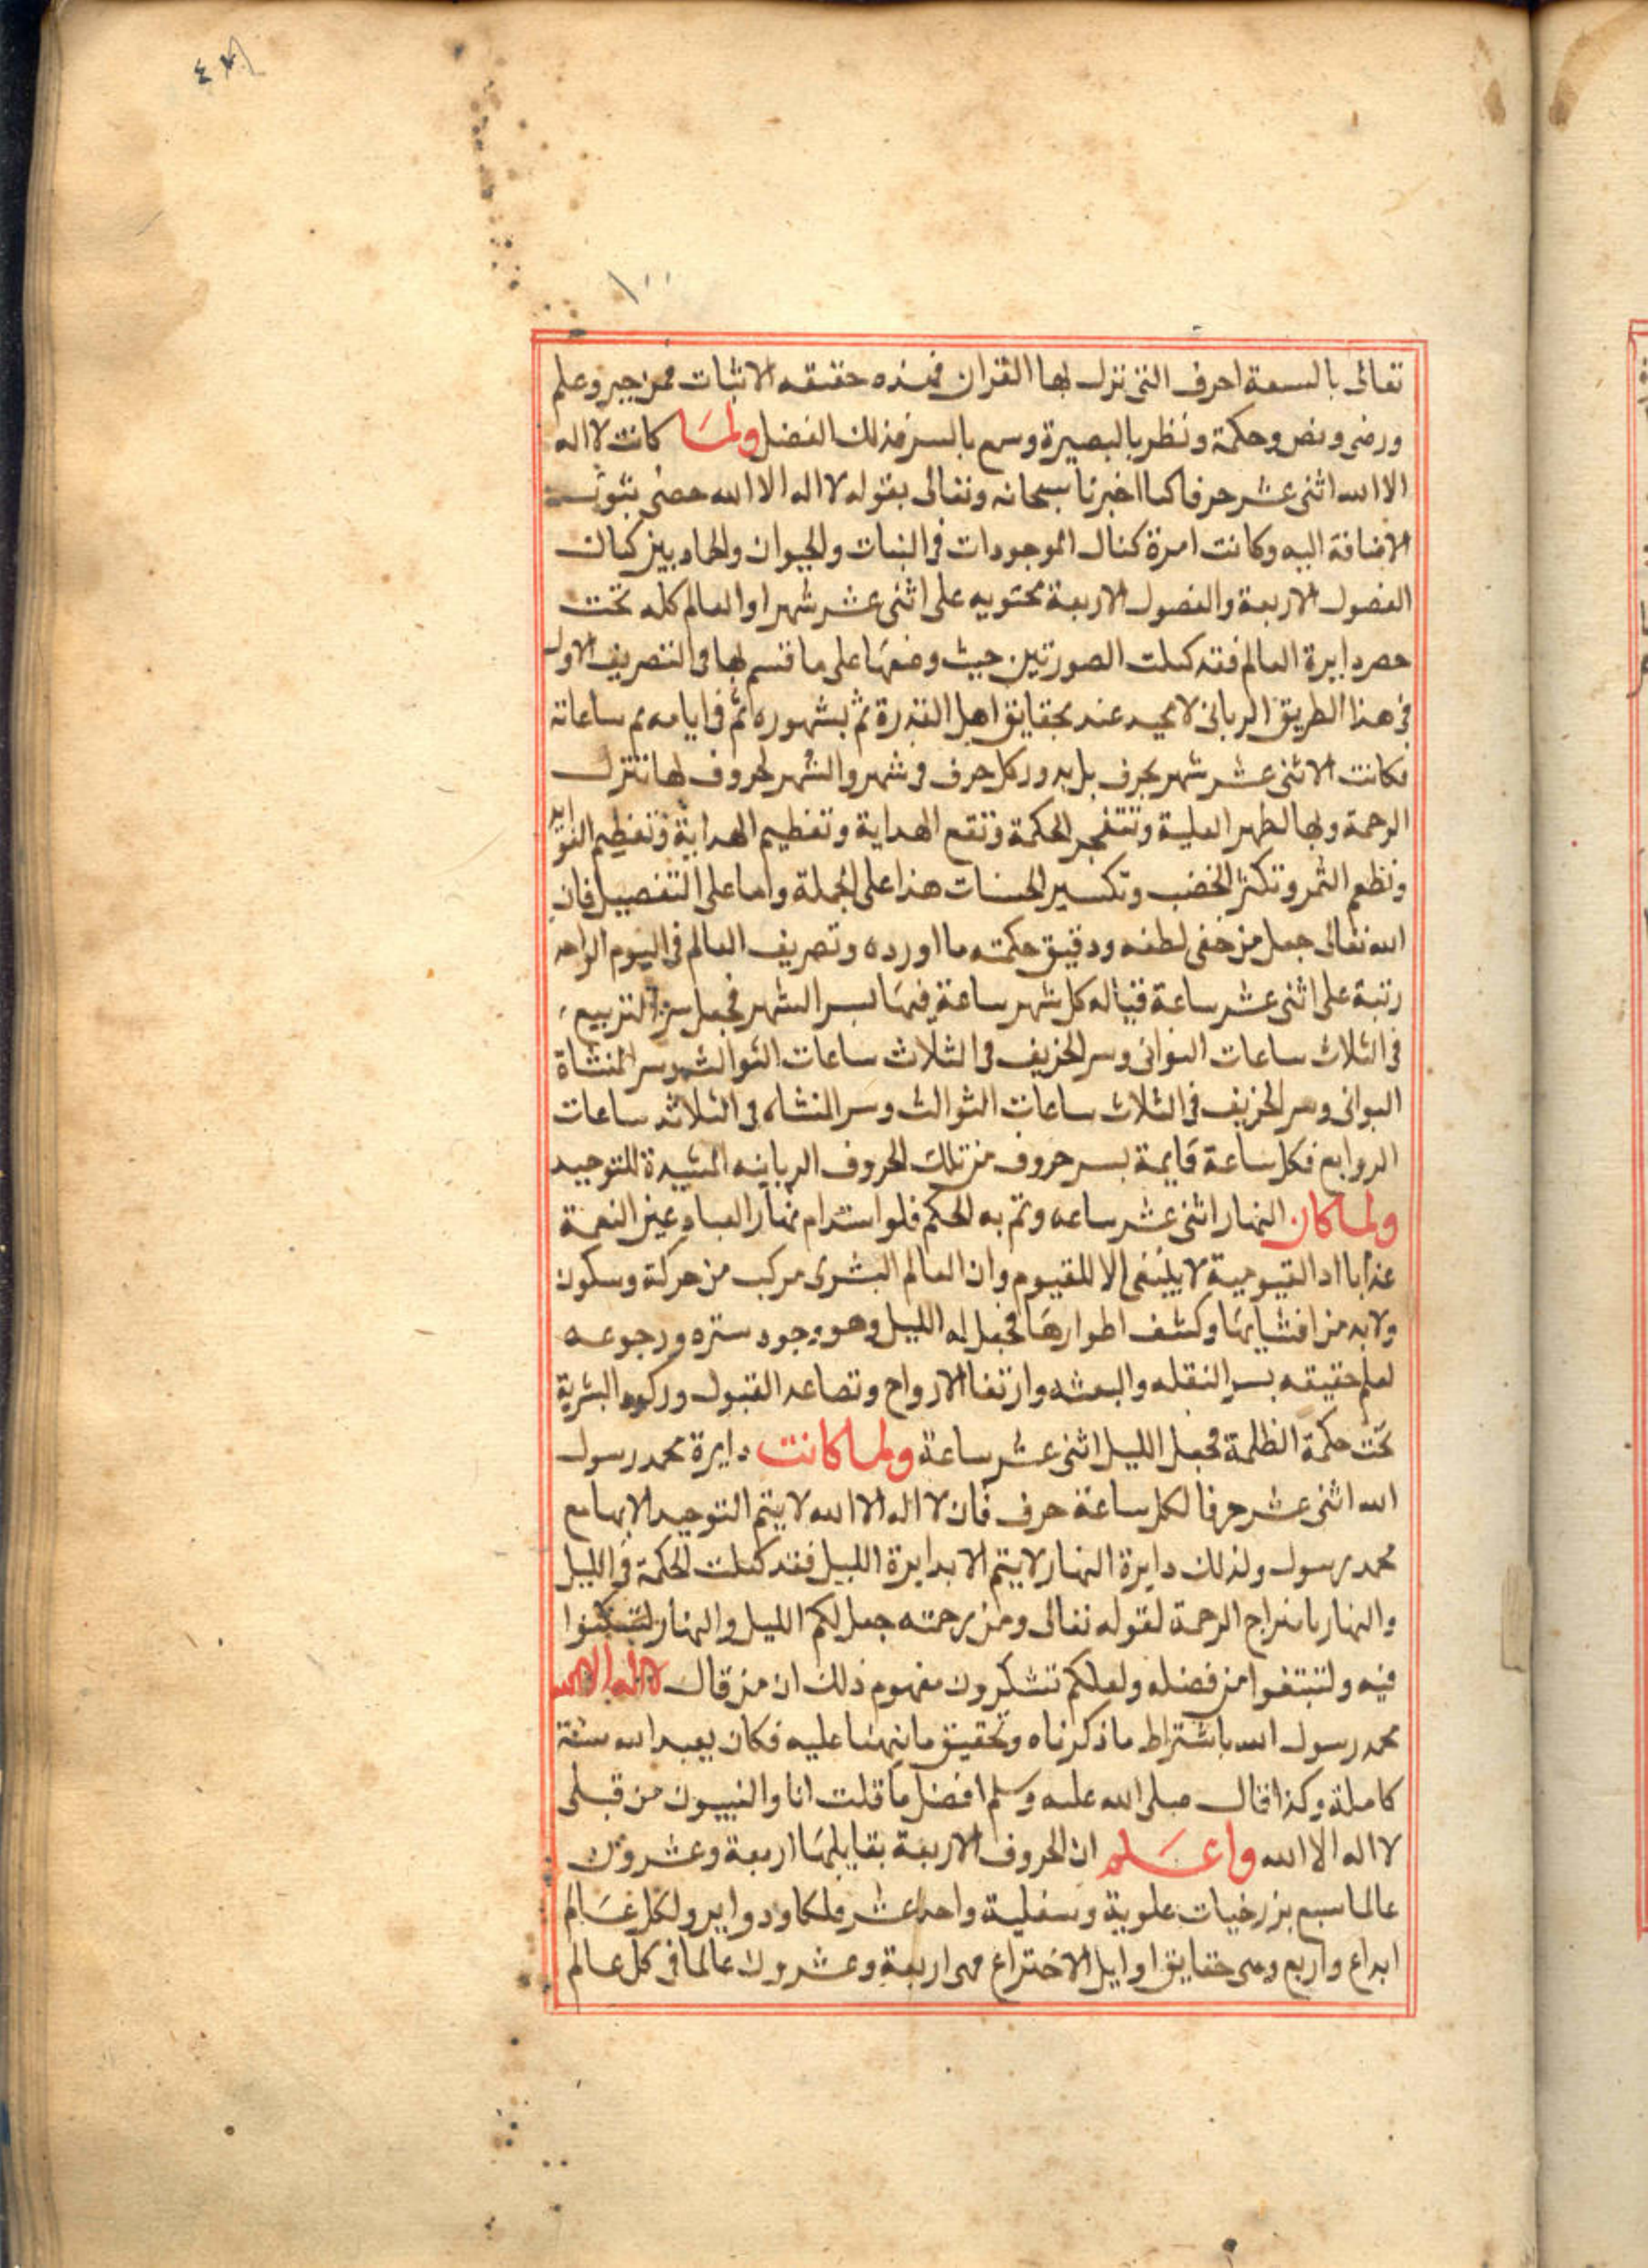 ١٠٠
تعالى بالسبعة احرف التى نزل بها القران فهذه حقيقه الاثبات فمن جبر وعلم
ورضى ونص وحكمة ونظر بالبصيرة وسم بالسر فذلك الفضل ولما كانت لا اله
الا الله اثنى عشر حرفا كما اخبرنا سبحانه وتعالى بقوله لا اله الا الله حصنى بثبوت
الاضافة اليه وكانت امرة كتال الموجودات فى النبات والحيوان والجماد بين كيان
الفصول الاربعة والفصول الاربعة محتويه على اثنى عشر شهرا والعالم كله تحت
حصر دايرة العالم فقد كملت الصورتين حيث وضعها على ما قسم لها فى التصريف الاول
فى هذا الطريق الربانى لا محيد عند بحقايق اهل القدرة ثم بشهوره ثم فى ايامه ثم ساعاته
فكانت الاثنى عشر شهر بحرف بل يدور كل حرف فى شهر والشهر لحروف لها تتنزل
الرحمة وبها تظهر العلية وتنفجر الحكمة وتقع الهداية وتعظيم الهداية وتعظيم الفوايد
ونطعم الثمر وتكثر الخضب وتكسير الحسنات هذا على الجملة واما على التفصيل فان
الله تعالى جعل من خفى لطفه ودقيق حكمته ما اورده وتصريف العالم فى اليوم الواحد
رتبة على اثنى عشر ساعة قبالة كل شهر ساعة فيها بسر الشهر فجعل سر التربيع
فى الثلاث ساعات الثوانى وسر الخريف فى الثلاث ساعات الثوالث وسر المنشاة
الثوانى وسر الخريف فى الثلاث ساعات الثوالث وسر المنشاه فى الثلاثه ساعات
الروابع فكل ساعة قايمة بسر حروف من تلك الحروف الربانيه المشيدة للتوحيد
ولما كان النهار اثنى عشر ساعه وتم به الحكم فلو استدام نهار العباد عين النعمة
عذابا اد القيومية لا ينبغى الا للقيوم وان العالم البشرى مركب من حركة وسكون
ولا بد من افشايها وكشف اطوارها فجعل له الليل وهو وجود ستره ورجوعه
لعلم حقيقه بسر النقله والبعثه وارتقا الارواح وتصاعد القبول وركود البشرية
تحت حكمة الظلمة فجعل الليل اثنى عشر ساعة ولما كانت دايرة محمد رسول
الله اثنى عشر حرفا لكل ساعة حرف فان لا اله الا الله لا يتم التوحيد الا بها مع
محمد رسول ولذلك دايرة النهار لا يتم الا بدايرة الليل فقد كملت الحكمة فى الليل
والنهار بامزاج الرحمة لقوله تعالى ومن رحمته جعل لكم الليل والنهار لتسكنوا
فيه ولتبتغوا من فضله ولعلكم تشكرون مفهوم ذلك ان من قال لا اله الا الله
محمد رسول الله باشتراط ما ذكرناه وتحقيق ما نبهنا عليه فكان يعبد الله سنة
كاملة وكذا قال صلى الله عليه وسلم افضل ما قلت انا والنبيون من قبلى
لا اله الا الله واعلم ان الحروف الاربعة بقابلها اربعة وعشرون
عالما سبع برزخيات علوية وسفلية واحد عشر فلكا ودواير ولكل عالم
ابداع واربع وهى حقايق اوايل الاختراع فهى اربعة وعشرون عالما فى كل عالم